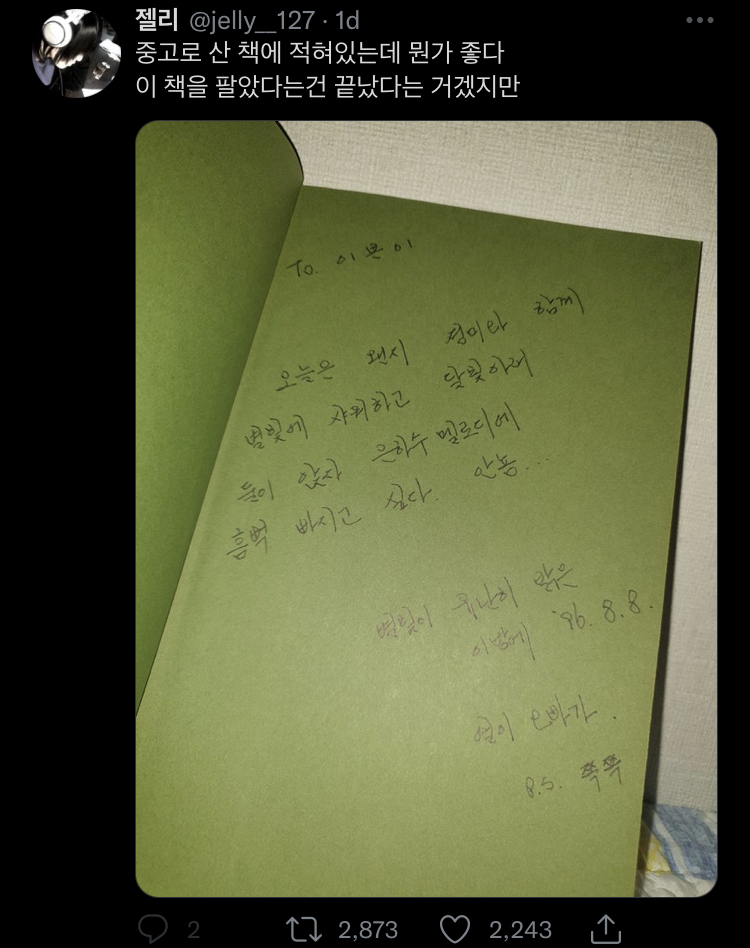 젤리 @jelly__127 · 1d
중고로 산 책에 적혀있는데 뭔가 좋다
이 책을 팔았다는건 끝났다는 거겠지만
To. 이쁜이
오늘은 왠지 경미랑 함께
별빛에 샤워하고 달빛아래
둘이 앉자 은하수 멜로디에
흠뻑 빠지고 싶다. 안뇽...
별빛이 유난히 맑은
이밤에 '96. 8. 8.
오빠가.
P.S. 쪽쪽
2
2,873
2,243